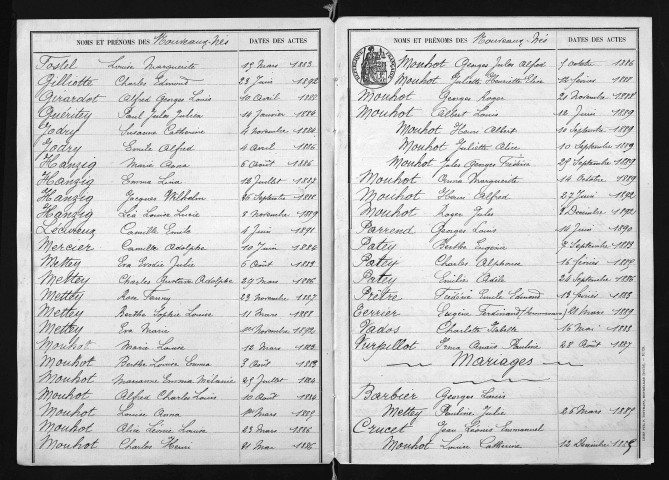 NOMS ET PRÉNOMS DES Nouveaux-Nés DATES DES ACTES
Fostel Louise Marguerite 19 Mars 1883
Gilliotte Charles Edmond 23 Juin 1892
Girardot Alfred Georges Louis 10 Avril
Quenley Paul Jules Julien 14 Janvier 1884
Jodry Susanne Catherine 4 Novembre
Jodry Emile Alfred 4 Avril 1886
Hanzig Marie Anna 6 Août 1886
Hanzig Emma Lina 12 Juillet 1887
Hanzig Jacques Wilhelm 25 Septembre 1888
Hanzig Léa Louise Lucie 8 Novembre 1889
Lecureux Camille Emile 4 Juin 1891
Mercier Camille Adolphe 10 Juin 1886
Mettey Eva Elodie Julie 6 Août 1883
Mettey Charles Gustave Adolphe 29 Mars 1886
Mettey Léon Fanny 23 Novembre 1887
Mettey Berthe Sophie Louise 11 Mars 1888
Mettey Eva Marie 1er Novembre 1892
Mouhot Marie Louise 12 Mars 1883
Mouhot Berthe Louise Emma 3 Août 1883
Mouhot Marianne Emma Mélanie 25 Juillet 1884
Mouhot Alfred Charles Louis 10 Août 1884
Mouhot Louise Anna 1er Mars 1885
Mouhot Alice Léonie Louise 23 Mars 1886
Mouhot Charles Henri 31 Mai 1886
NOMS ET PRÉNOMS DES Nouveaux-Nés DATES DES ACTES
Mouhot Georges Jules Alfred 1 Octobre 1886
Mouhot Juliette Henriette Elise 12 Février 1888
Mouhot Georges Roger 21 Novembre 1888
Mouhot Albert Louis 12 Juin 1889
Mouhot Henri Albert 10 Septembre 1889
Mouhot Juliette Alice 10 Septembre 1889
Mouhot Jules Georges Frédéric 29 Septembre 1889
Mouhot Anna Marguerite 14 Octobre 1889
Mouhot Henri Alfred 27 Juin 1892
Mouhot Roger Jules 9 Décembre 1892
Parrend Georges Louis 14 Juin 1890
Patey Berthe Eugénie 9 Septembre 1883
Patey Charles Alphonse 16 Février 1889
Patey Emilie Adèle 24 Septembre 1886
Prêtre Frédéric Emile Edmond 13 Février 1883
Terrier Eugène Ferdinand 21 Mars 1889
Vados Charlotte Isabelle 16 Mai 1888
Vurpillot Irma Anaïs Pauline 28 Août 1887
Mariages
Barbier Georges Louis
Mettey Pauline Julie 26 Mars 1889
Crucet Jean Léonis Emmanuel
Mouhot Louise Catherine 12 Décembre 1885